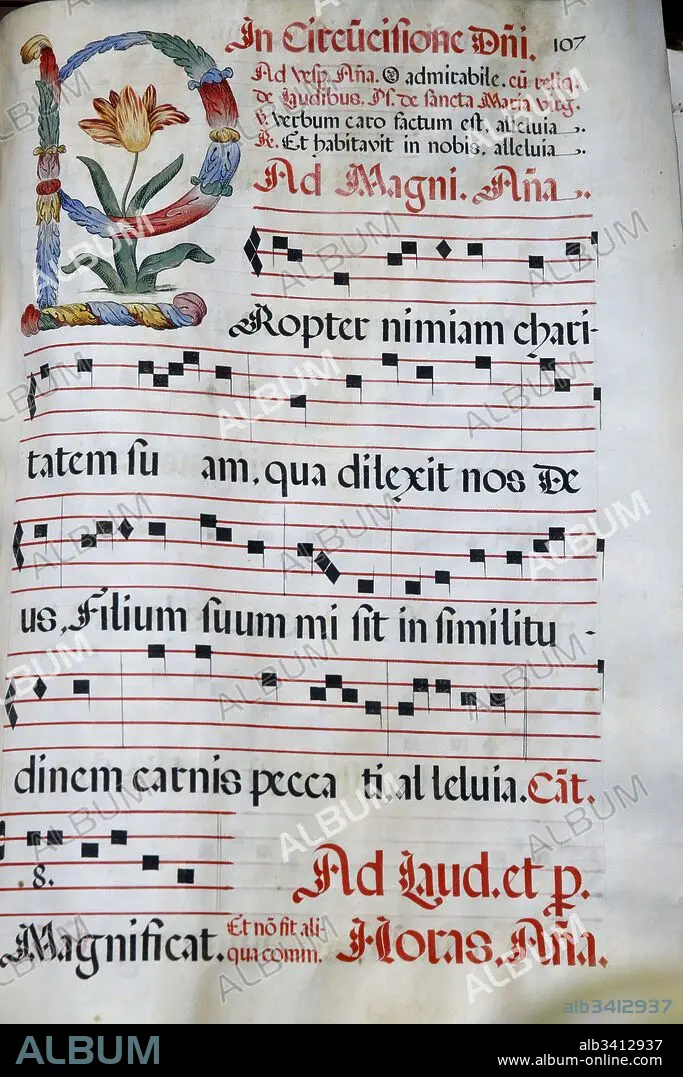 In Circũcisione Dñi. 107
Ad Vesp. Aña. O admirabile. cũ reliq.
de Laudibus. Ps. de sancta Maria Virg.
V. Verbum caro factum est, alleluia.
R. Et habitavit in nobis, alleluia.
Ad Magni. Aña.
PRopter nimiam chari-
tatem su am, qua dilexit nos De
us, Filium suum mi sit in similitu -
dinem carnis pecca ti, al leluia. Cãt.
.8.
Ad Laud. et p.
Magnificat. Et nõ fit ali-
qua comm. Horas, Aña.
alb3412937
ALBUM
alb3412937
www.album-online.com